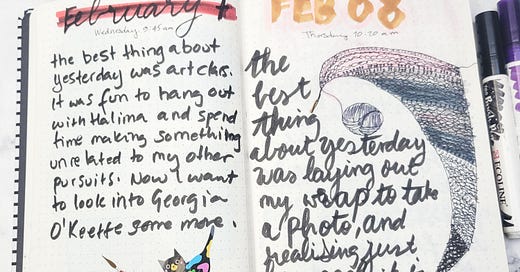 February 7
Wednesday. 9:45 am
the best thing about
yesterday was art class.
It was fun to hang out
with Halima and spend
time making something
unrelated to my other
pursuits. Now I want
to look into Georgia
O'Keeffe some more.
FEB 08
Thursday 10:20 am
the
best
thing
about yesterday
was laying out
my wrap to take
a photo, and
realising just
ECOLINE